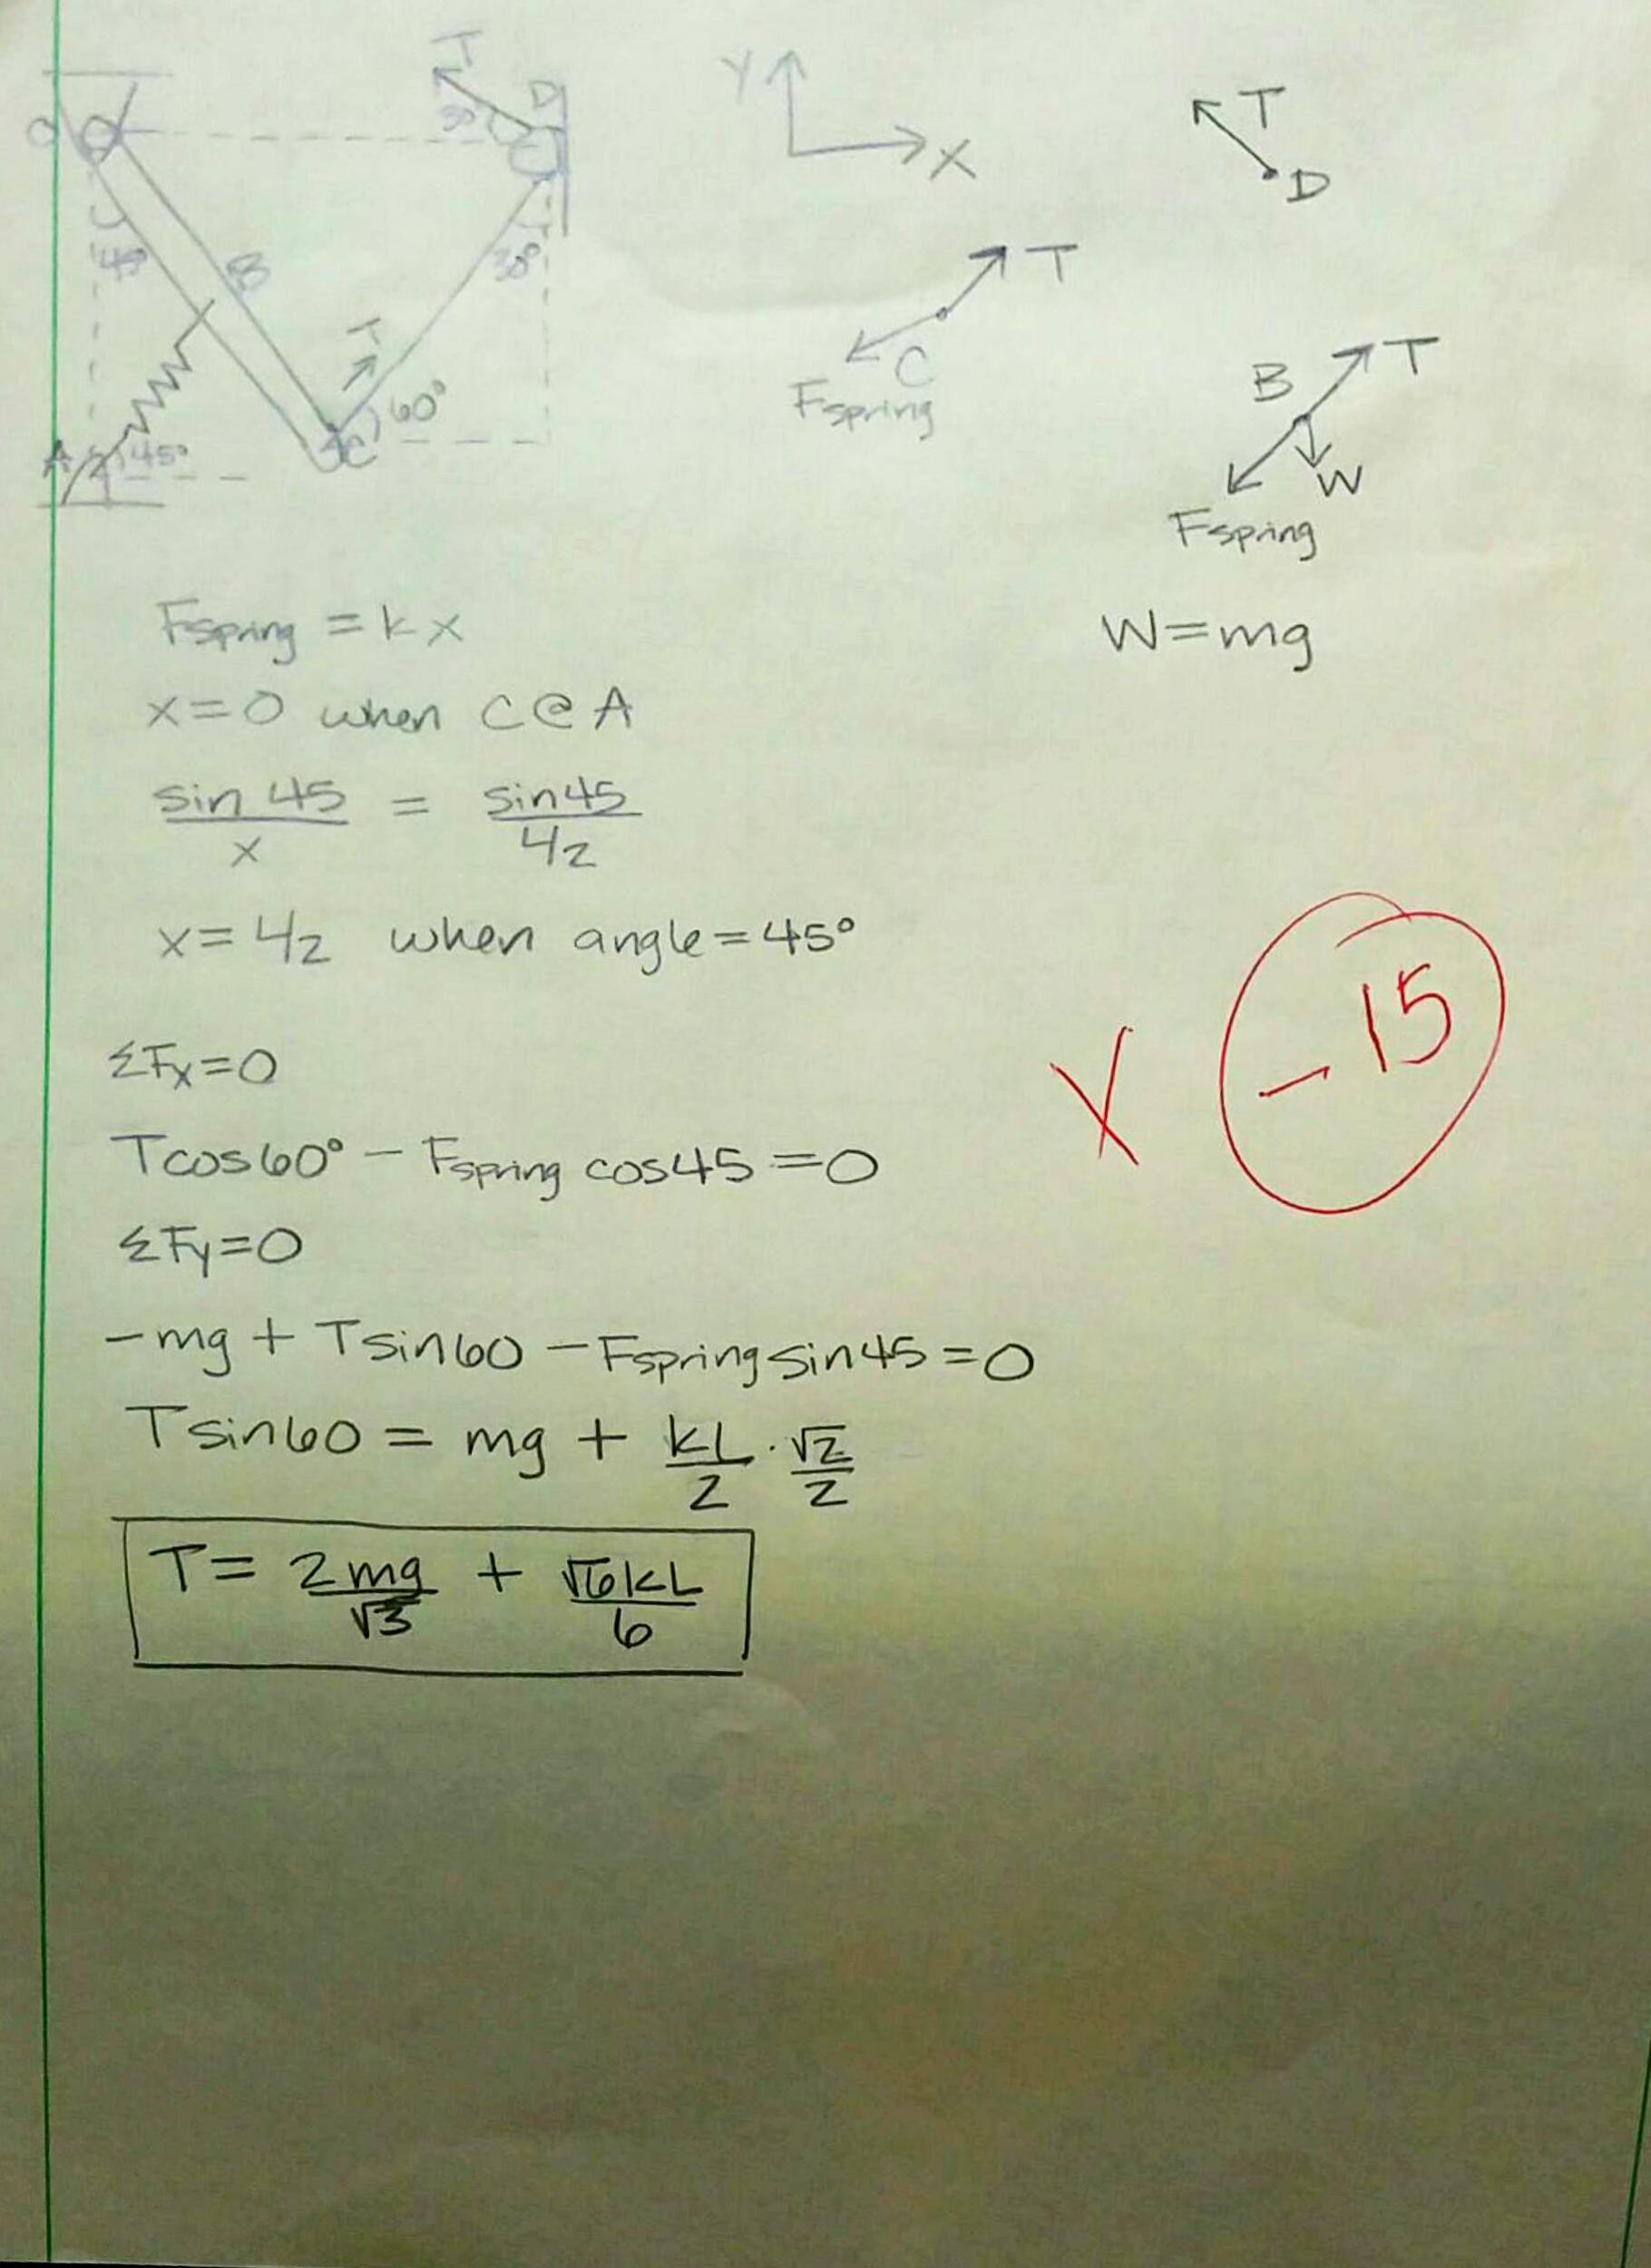 T
D
30°
O
45°
B
30°
T
60°
C
A
45°
Y
X
T
D
T
C
Fspring
B
T
W
Fspring
Fspring = kx
W=mg
x=0 when C@A
sin 45 / x = sin45 / 4z
x= 4z when angle=45°
ΣFx=0
Tcos60° - Fspring cos45 =0
ΣFy=0
-mg + Tsin60 - Fspring sin45=0
Tsin60 = mg + kL/2 · √2/2
T= 2mg/√3 + √6kL/6
X -15